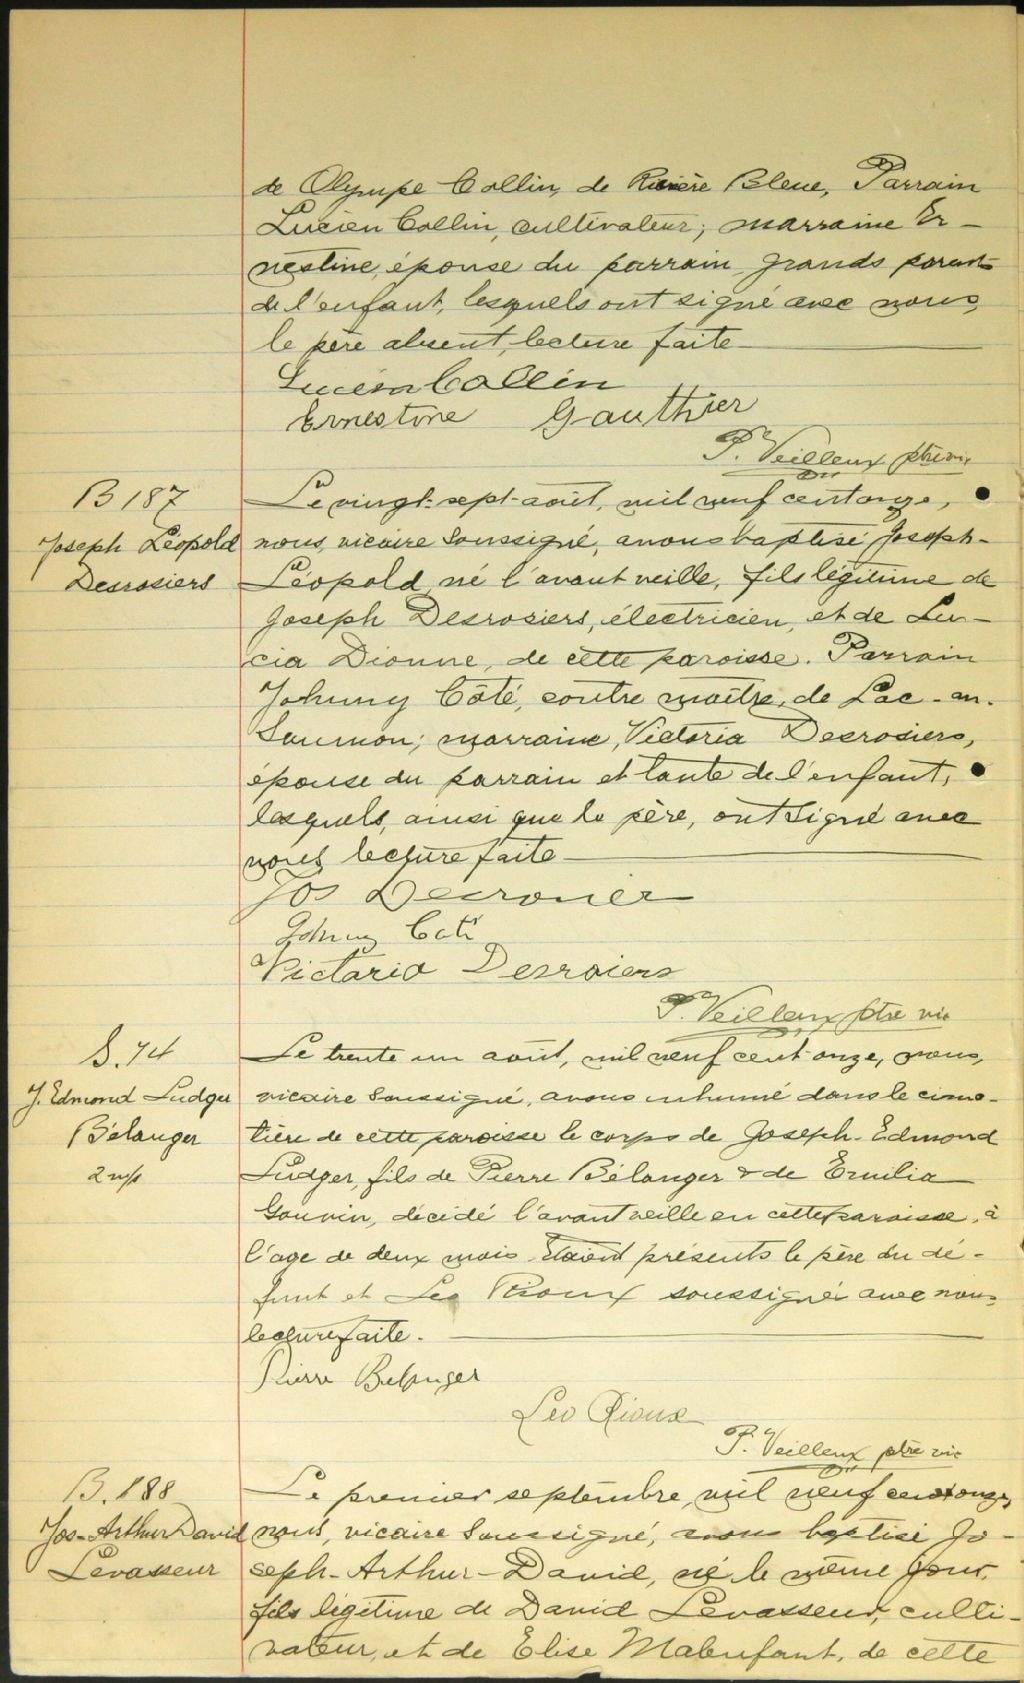 de Olympe Collin, de Rivière Bleue, Parrain
Lucien Collin, cultivateur; marraine Er-
nestine, épouse du parrain, grands parents
de l'enfant, lesquels ont signé avec nous,
le père absent, lecture faite
Lucien Collin
Ernestine Gauthier
P. Veilleux ptre vic
B 187
Joseph Léopold
Desrosiers
Le vingt-sept-août, mil neuf cent onze,
nous, vicaire soussigné, avons baptisé Joseph-
Léopold, né l'avant veille, fils légitime de
Joseph Desrosiers, électricien, et de Lu-
cia Dionne, de cette paroisse. Parrain
Johnny Côté, contre maître, de Lac-au-
Saumon; marraine, Victoria Desrosiers,
épouse du parrain et tante de l'enfant,
lesquels, ainsi que le père, ont signé avec
nous lecture faite
Jos Desrosier
Johnny Coté
Victoria Desrosiers
P. Veilleux ptre vic
S. 74
J. Edmond Ludger
Bélanger
2 m/s
Le trente un août, mil neuf cent onze, nous,
vicaire soussigné, avons inhumé dans le cime-
tière de cette paroisse le corps de Joseph-Edmond
Ludger, fils de Pierre Bélanger & de Emilia
Gauvin, décédé l'avant veille en cette paroisse, à
l'age de deux mois. Etaient présents le père du dé-
funt et Leo Rioux soussignés avec nous,
lecture faite.
Pierre Belanger
Leo Rioux
P. Veilleux ptre vic
B. 188
Jos-Arthur David
Levasseur
Le premier septembre, mil neuf cent onze,
nous, vicaire soussigné, avons baptisé Jo-
seph-Arthur-David, né le même jour,
fils légitime de David Levasseur, culti-
vateur, et de Elise Malenfant, de cette